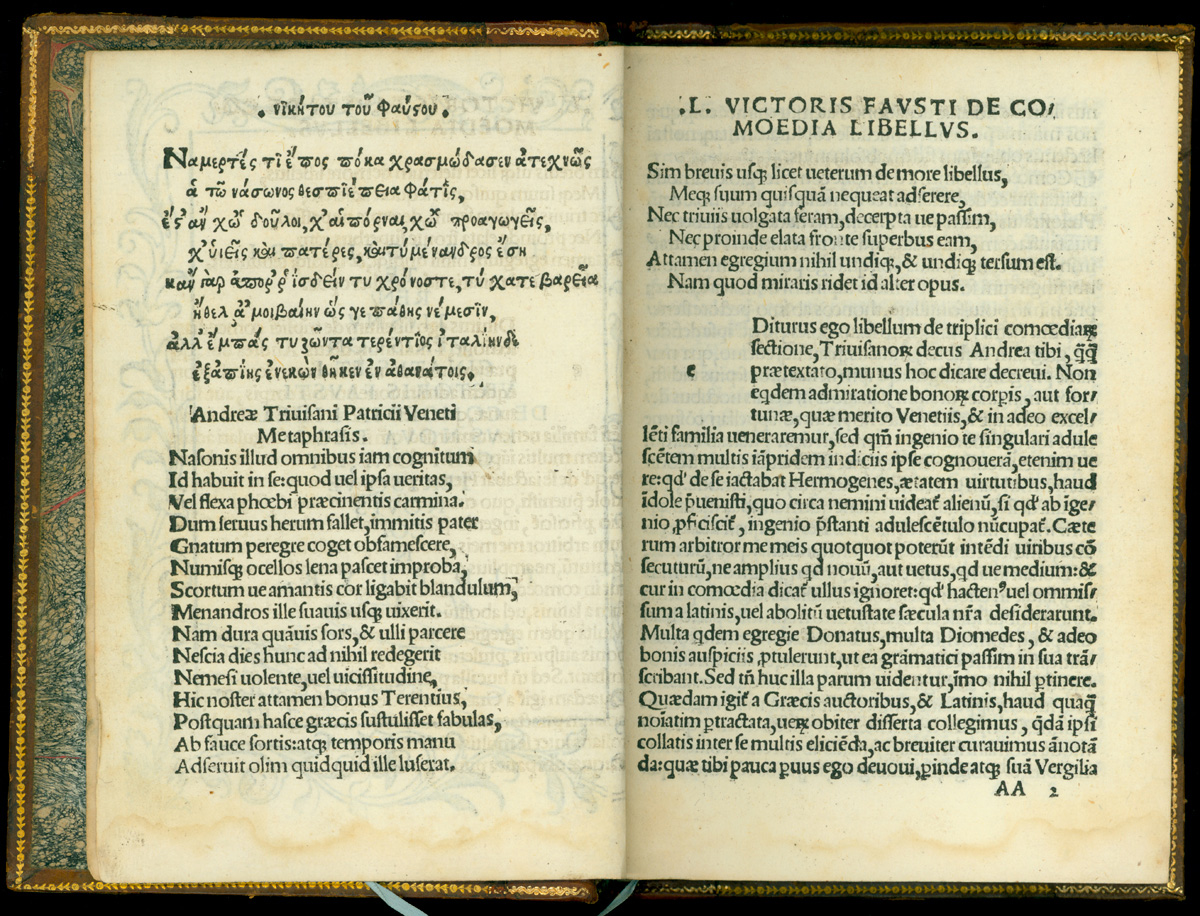 . νικήτου τοῦ φαύστου.
Ναμερτές τι ἔπος πόκα χρασμώδασεν ἀτεχνῶς
ἁ τῶ νάσωνος θεσπιέπεια φάτις,
ἔστ' ἂν χὦ δοῦλοι, χ' αἱ πόρναι, χὦ προαγωγεῖς,
χ' υἱεῖς καὶ πατέρες, καὶ τὺ μένανδρος ἔση
καὶ γὰρ
ἤθελ' ἀμοιβαίην ὥς γε πάθης νέμεσιν,
ἀλλ' ἔμπας τυ ζώντα τερέντιος ἰταλίηνδε
ἐξαπίνης ἐνεκὼν θῆκεν ἐν ἀθανάτοις.
Andreæ Triuisani Patricii Veneti
Metaphrasis.
Nasonis illud omnibus iam cognitum
Id habuit in se: quod uel ipsa ueritas,
Vel flexa phœbi præcinentis carmina.
Dum seruus herum fallet, immitis pater
Gnatum peregre coget obfamescere,
Numisq; ocellos lena pascet improba,
Scortum ue amantis cor ligabit blandulum,
Menandros ille suauis usq; uixerit.
Nam dura quãuis sors, & ulli parcere
Nescia dies hunc ad nihil redegerit
Nemesi uolente, uel uicissitudine,
Hic noster attamen bonus Terentius,
Postquam hasce græcis sustulisset fabulas,
Ab fauce sortis: atq; temporis manu
Adseruit olim quidquid ille luserat.
.L. VICTORIS FAVSTI DE CO/
MOEDIA LIBELLVS.
Sim breuis usq; licet ueterum de more libellus,
Meq; suum quisquã nequeat adserere,
Nec triuiis uolgata feram, decerpta ue passim,
Nec proinde elata fronte superbus eam,
Attamen egregium nihil undiq;, & undiq; tersum est.
Nam quod miraris ridet id alter opus.
Diturus ego libellum de triplici comœdiaꝝ
sectione, Triuisanoꝝ decus Andrea tibi, q̃q̃
e prætextato, munus hoc dicare decreui. Non
eqdem admiratione bonoꝝ corpis, aut for/
tunæ, quæ merito Venetiis, & in adeo excel/
lẽti familia ueneraremur, sed qm̃ ingenio te singulari adule
scẽtem multis iãpridem indiciis ipse cognouerã, etenim ue
re: qd' de se iactabat Hermogenes, ætatem uirtutibus, haud
ĩdole p̃uenisti, quo circa nemini uideat̃ alienũ, si qd' ab ige/
nio ꝓficiscit̃, ingenio p̃stanti adulescẽtulo nũcupat̃. Cæte
rum arbitror me meis quotquot poterũt intẽdi uiribus cõ
secuturũ, ne amplius qd nouũ, aut uetus, qd ue medium: &
cur in comœdia dicat̃ ullus ignoret: qd' hacten⁹ uel ommis/
sum a latinis, uel abolitũ uetustate sæcula nr̃a desiderarunt.
Multa qdem egregie Donatus, multa Diomedes, & adeo
bonis auspiciis ꝓtulerunt, ut ea grãmatici passim in sua trã/
scribant. Sed tñ huc illa parum uidentur, ĩmo nihil ꝑtinere.
Quædam igit̃ a Græcis auctoribus, & Latinis, haud quaq̃
noĩatim ꝑtractata, ueꝝ obiter disserta collegimus, q̃dã ipsi
collatis inter se multis eliciẽda, ac breuiter curauimus ãnotã
da: quæ tibi pauca ꝑuus ego deuoui, ꝑinde atq; suã Vergilia
AA 2